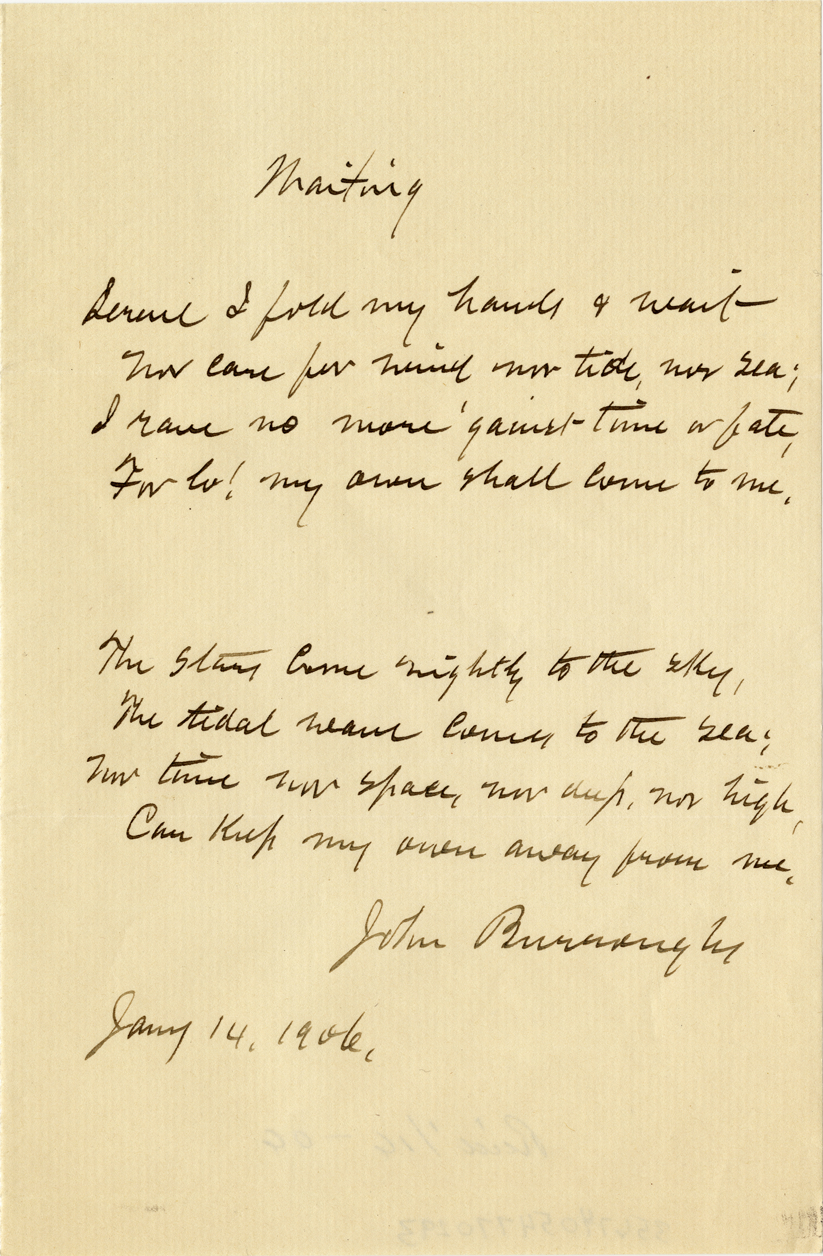 Waiting
Serene I fold my hands & wait
Nor care for wind nor tide, nor sea;
I rave no more 'gainst time or fate,
For lo! my own shall come to me.
The stars come nightly to the sky,
The tidal wave comes to the sea;
Nor time nor space, nor deep, nor high,
Can keep my own away from me.
John Burroughs
Jany 14, 1906.